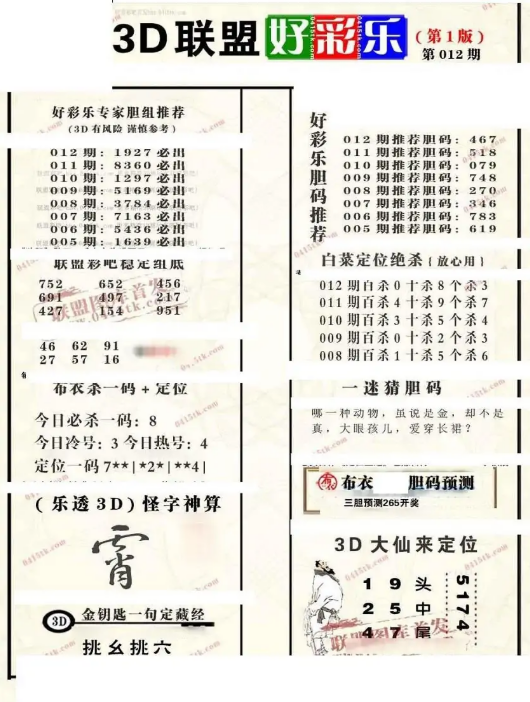 3D联盟 好彩乐 (第1版)
0415tk.com
第012期
好彩乐专家胆组推荐
(3D有风险 谨慎参考)
012期:1927必出
011期:8360必出
010期:1297必出
009期:5169必出
008期:3784必出
007期:7163必出
006期:5436必出
005期:1639必出
联盟彩吧稳定组底
752 652 456
691 497 217
427 154 951
联盟图库首发
46 62 91
27 57 16
布衣杀一码+定位
今日必杀一码:8
今日冷号:3 今日热号:4
定位一码 7**|*2*|**4|
(乐透3D)怪字神算
3D 金钥匙一句定藏经
挑幺挑六
好彩乐胆码推荐
012期推荐胆码:467
011期推荐胆码:518
010期推荐胆码:079
009期推荐胆码:748
008期推荐胆码:270
007期推荐胆码:346
006期推荐胆码:783
005期推荐胆码:619
白菜定位绝杀{放心用}
012期百杀0十杀8个杀3
011期百杀4十杀9个杀7
010期百杀3十杀5个杀4
009期百杀0十杀2个杀3
008期百杀1十杀5个杀6
一迷猜胆码
哪一种动物,虽说是金,却不是
真,大眼孩儿,爱穿长裙?
布衣 胆码预测
三胆预测265开奖
3D大仙来定位
1 9 头
2 5 中
4 7 尾
5174
联盟图库首发
0415tk.com